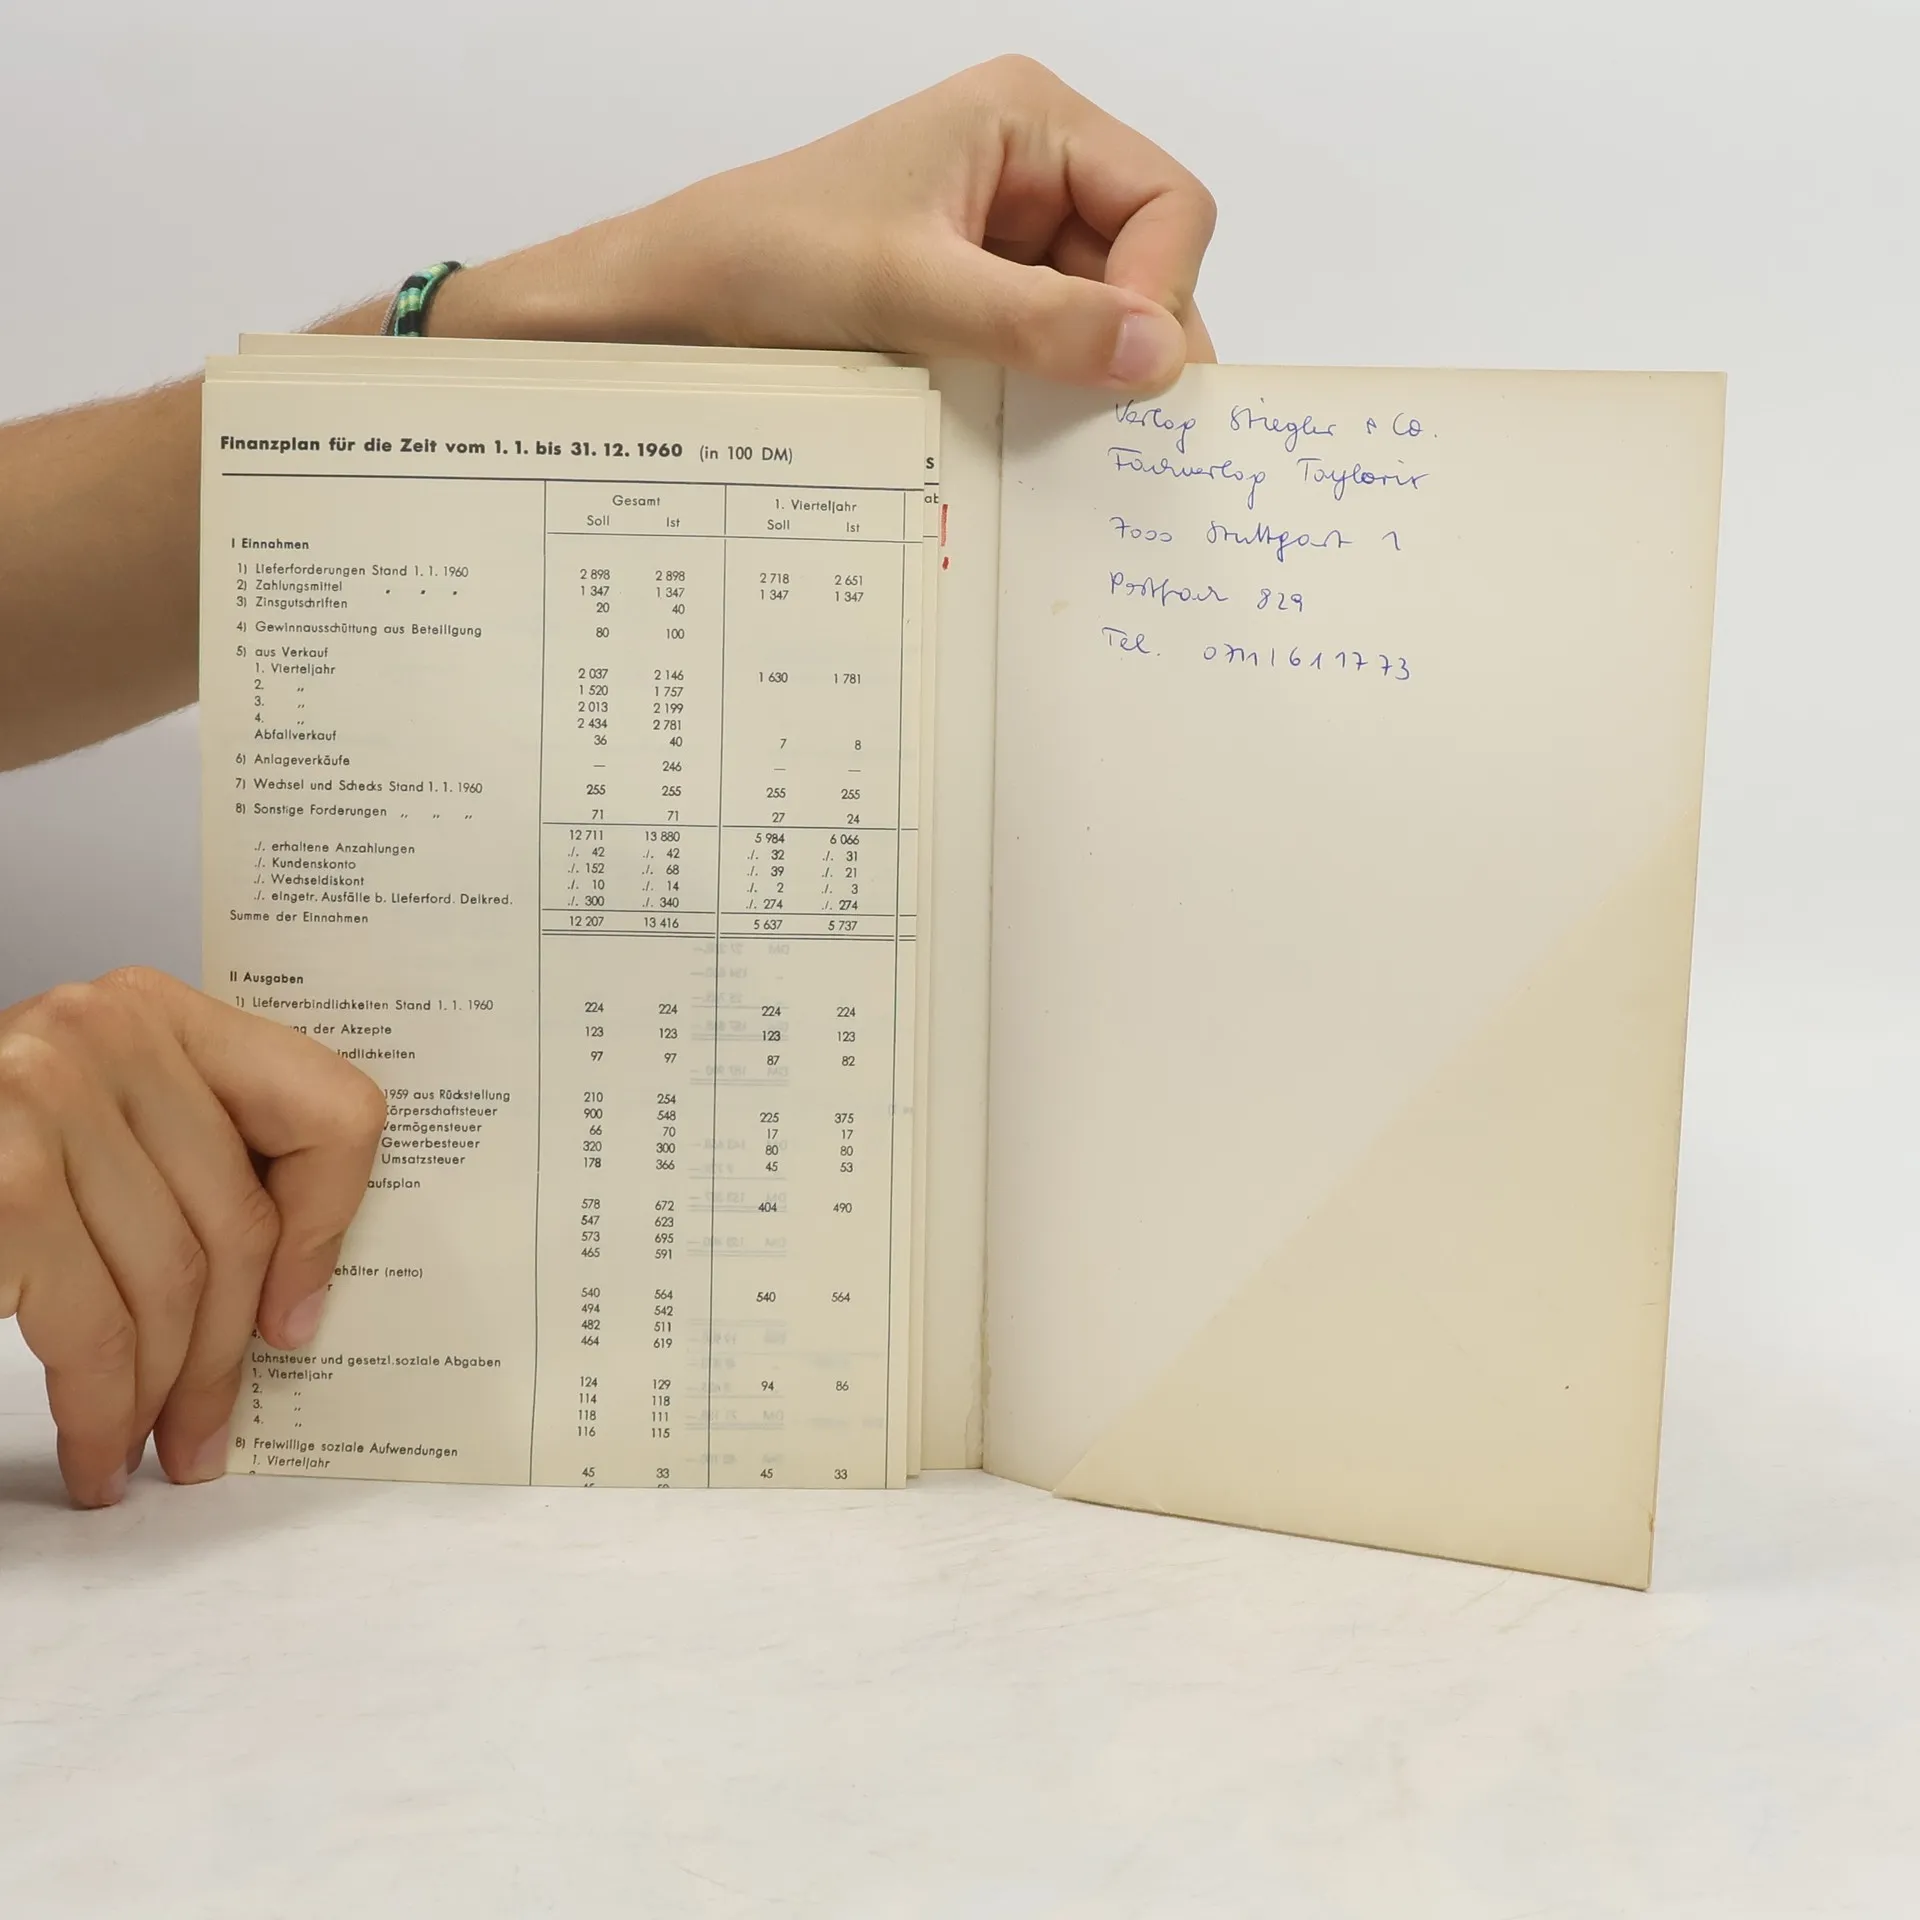 Finanzplan für die Zeit vom 1. 1. bis 31. 12. 1960 (in 100 DM)
Gesamt 1. Vierteljahr
Soll Ist Soll Ist
I Einnahmen
1) Lieferforderungen Stand 1. 1. 1960 2 898 2 898 2 718 2 651
2) Zahlungsmittel „ „ „ 1 347 1 347 1 347 1 347
3) Zinsgutschriften 20 40
4) Gewinnausschüttung aus Beteiligung 80 100
5) aus Verkauf
1. Vierteljahr 2 037 2 146 1 630 1 781
2. „ 1 520 1 757
3. „ 2 013 2 199
4. „ 2 434 2 781
Abfallverkauf 36 40 7 8
6) Anlageverkäufe — 246 — —
7) Wechsel und Schecks Stand 1. 1. 1960 255 255 255 255
8) Sonstige Forderungen „ „ „ 71 71 27 24
12 711 13 880 5 984 6 066
./. erhaltene Anzahlungen ./. 42 ./. 42 ./. 32 ./. 31
./. Kundenskonto ./. 152 ./. 68 ./. 39 ./. 21
./. Wechseldiskont ./. 10 ./. 14 ./. 2 ./. 3
./. eingetr. Ausfälle b. Lieferford. Delkred. ./. 300 ./. 340 ./. 274 ./. 274
Summe der Einnahmen 12 207 13 416 5 637 5 737
II Ausgaben
1) Lieferverbindlichkeiten Stand 1. 1. 1960 224 224 224 224
ng der Akzepte 123 123 123 123
indlichkeiten 97 97 87 82
1959 aus Rückstellung 210 254
Körperschaftsteuer 900 548 225 375
Vermögensteuer 66 70 17 17
Gewerbesteuer 320 300 80 80
Umsatzsteuer 178 366 45 53
aufsplan
578 672 404 490
547 623
573 695
465 591
ehälter (netto)
r 540 564 540 564
494 542
482 511
4. 464 619
Lohnsteuer und gesetzl. soziale Abgaben
1. Vierteljahr 124 129 94 86
2. „ 114 118
3. „ 118 111
4. „ 116 115
8) Freiwillige soziale Aufwendungen
1. Vierteljahr 45 33 45 33
s
ab
Verlag Stiegler & Co.
Fachverlag Taylorix
7000 Stuttgart 1
Postfach 829
Tel. 0711 / 61 17 73